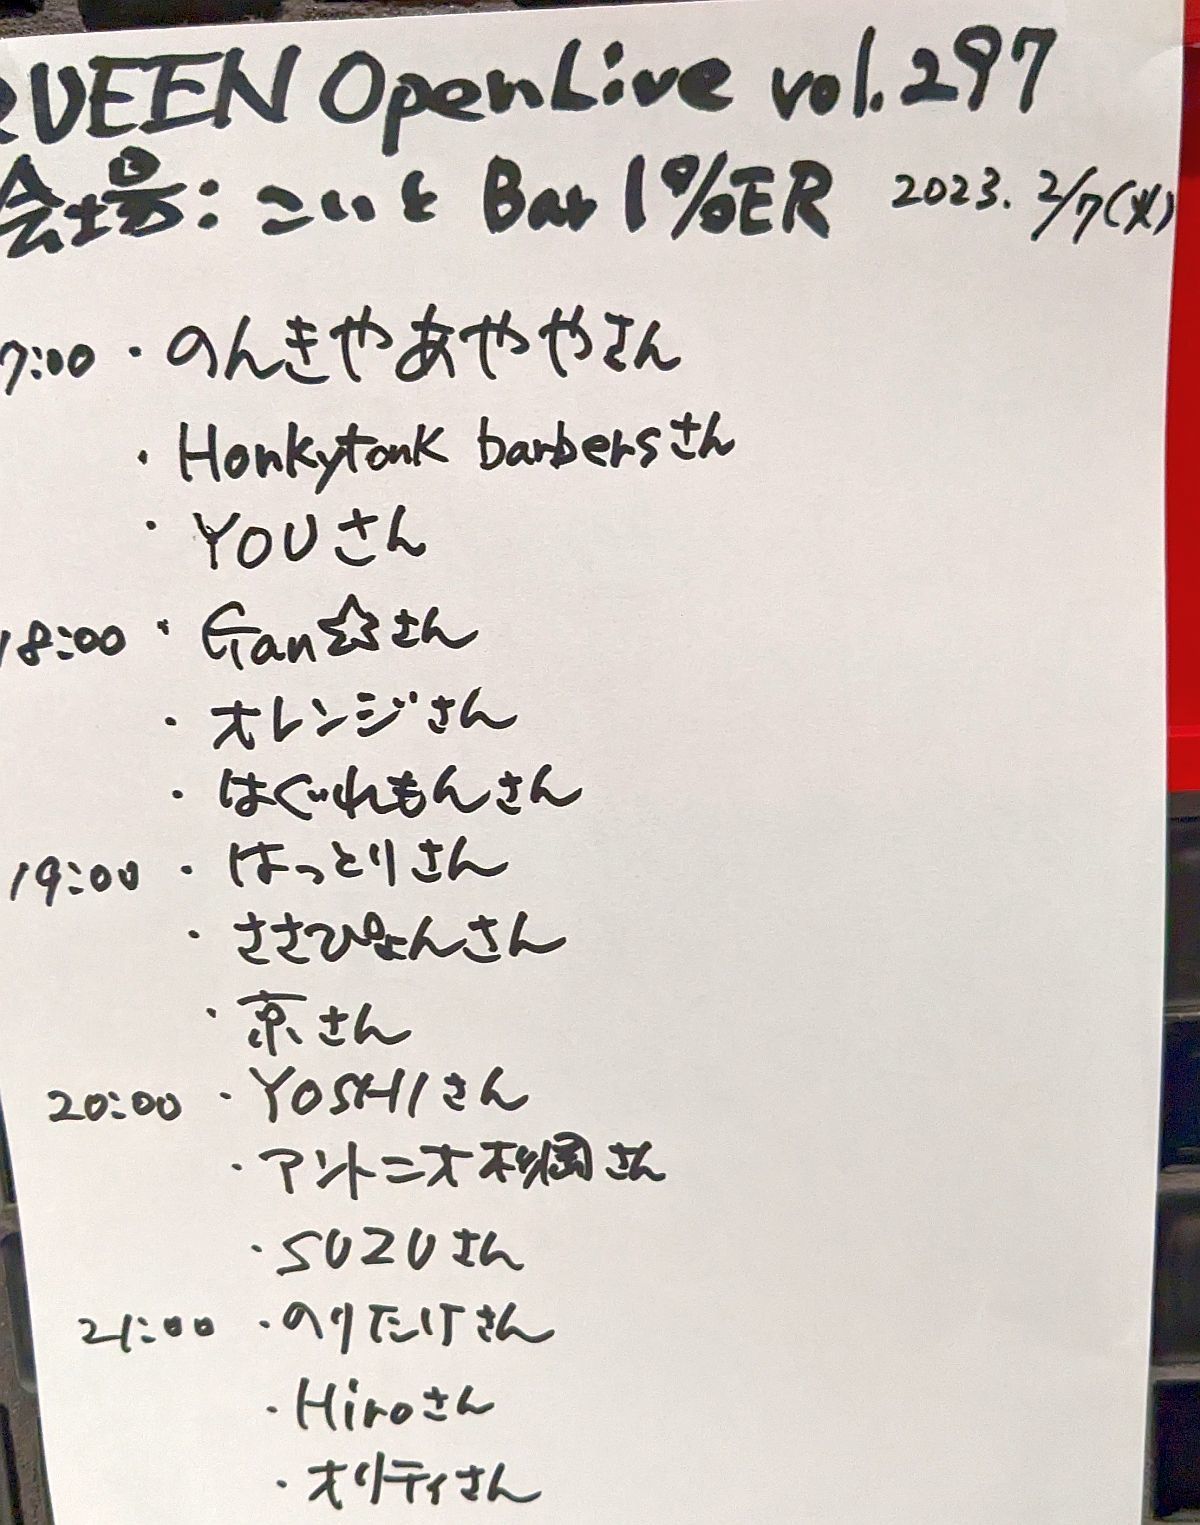 QUEEN OpenLive vol.297
会場：こいと Bar 1%ER 2023. 2/7(火)
7:00 ・のんきやあややさん
・Honkytonk barbersさん
・YOUさん
18:00 ・Gan☆さん
・オレンジさん
・はぐれもんさん
19:00 ・はっとりさん
・ささぴょんさん
・京さん
20:00 ・YOSHIさん
・アントニオ杉岡さん
・SUZUさん
21:00 ・のりたけさん
・Hiroさん
・オリティさん